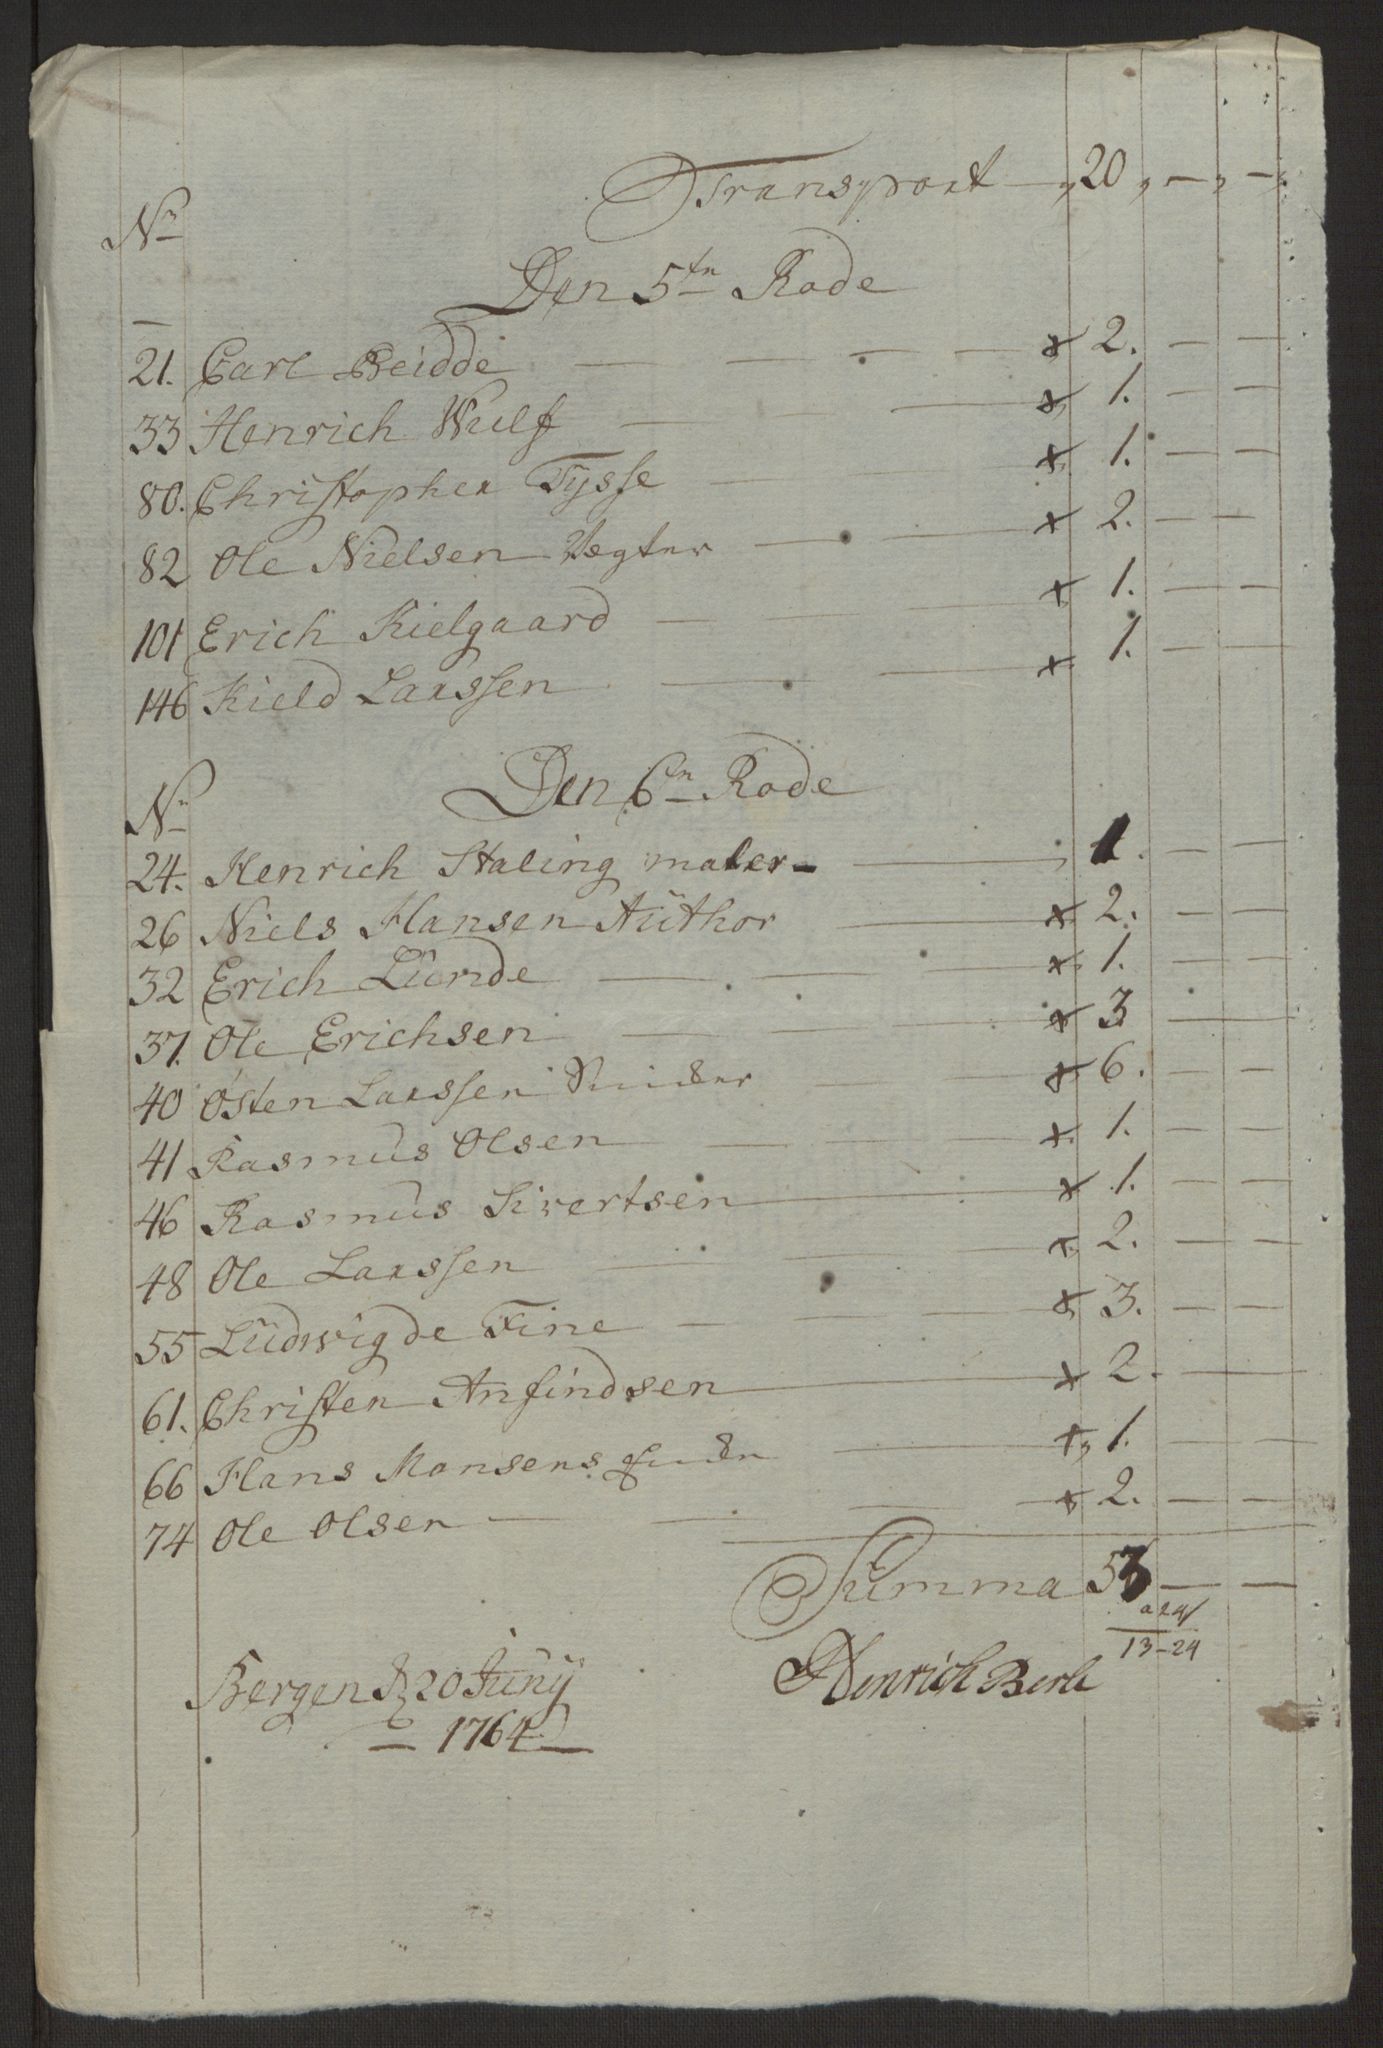 Transport „ 20 „ — „ — „
Nr
Den 5te Rode
21. Carl Beidde — — — — x 2. — —
33 Henrich Wulf — — — x 1. — —
80. Christopher Tysse — — — x 1. — —
82 Ole Nielsen Vægter — — — x 2. — —
101 Erich Kielgaard — — — x 1. — —
146 Kield Larssen — — — x 1. — —
Den 6te Rode
Nr
24. Henrich Staling maler — — „ 1. — —
26 Niels Hansen Author — x 2. — —
32 Erich Lunde — — — x 1. — —
37. Ole Erichsen — — — x 3 — —
40 Østen Larssen — — x 6. — —
41 Rasmus Olsen — — x 1. — —
46 Rasmus Sivertsen — x 1. — —
48 Ole Larssen — — x 2. — —
55 Ludwig de Fine — — — x 3. — —
61. Christen Anfindsen — x 2. — —
66 Hans Monsens — x 1. — —
74 Ole Olsen — — — — x 2. — —
Summa 53 — —
a 24
13-24
Bergen d 20 Juny
Henrich Berle
— 1764 —